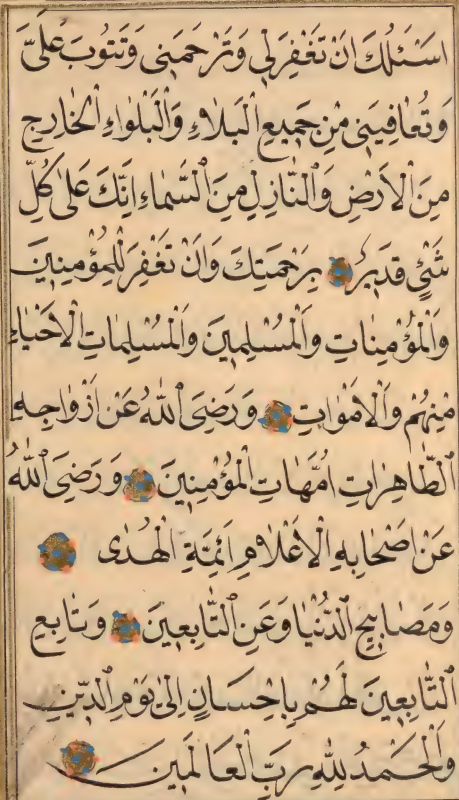 اَسْئَلُكَ اَنْ تَغْفِرَ لِي وَتَرْحَمَنِي وَتَتُوبَ عَلَيَّ
وَتُعَافِيَنِي مِنْ جَمِيعِ الْبَلَاءِ وَالْبَلْوَاءِ الْخَارِجِ
مِنَ الْاَرْضِ وَالنَّازِلِ مِنَ السَّمَاءِ اِنَّكَ عَلٰى كُلِّ
شَيْءٍ قَدِيرٌ بِرَحْمَتِكَ وَاَنْ تَغْفِرَ لِلْمُؤْمِنِينَ
وَالْمُؤْمِنَاتِ وَالْمُسْلِمِينَ وَالْمُسْلِمَاتِ الْاَحْيَاءِ
مِنْهُمْ وَالْاَمْوَاتِ وَرَضِيَ اللّٰهُ عَنْ اَزْوَاجِهِ
الطَّاهِرَاتِ اُمَّهَاتِ الْمُؤْمِنِينَ وَرَضِيَ اللّٰهُ
عَنْ اَصْحَابِهِ الْاَعْلَامِ اَئِمَّةِ الْهُدٰى
وَمَصَابِيحِ الدُّنْيَا وَعَنِ التَّابِعِينَ وَتَابِعِ
التَّابِعِينَ لَهُمْ بِاِحْسَانٍ اِلٰى يَوْمِ الدِّينِ
وَالْحَمْدُ لِلّٰهِ رَبِّ الْعَالَمِينَ